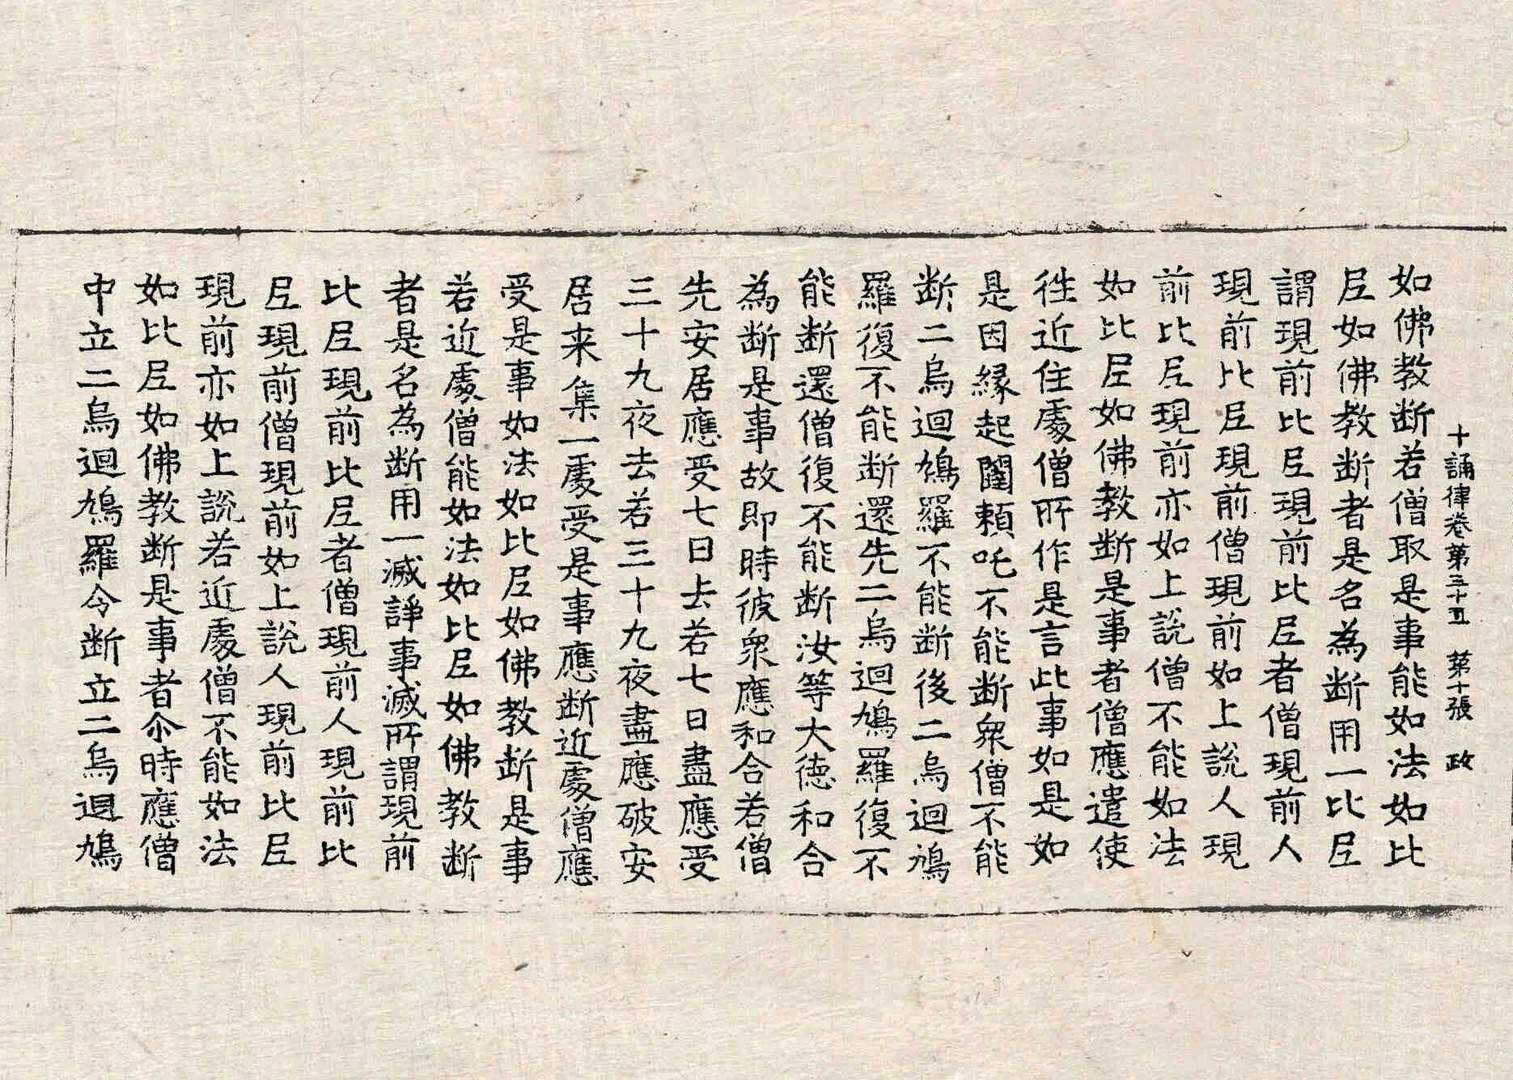 十誦律卷第三十五 第十張 政
如佛教断若僧取是事能如法如比
𡰱如佛教断者是名為断用一比𡰱
謂現前比𡰱現前比𡰱者僧現前人
現前比𡰱現前僧現前如上說人現
前比𡰱現前亦如上說僧不能如法
如比𡰱如佛教断是事者僧應遣使
徃近住處僧所作是言此事如是如
是因緣起闥頼吒不能断衆僧不能
断二烏迴鳩羅不能断後二烏迴鳩
羅復不能断還先二烏迴鳩羅復不
能断還僧復不能断汝等大德和合
為断是事故即時彼衆應和合若僧
先安居應受七日去若七日盡應受
三十九夜去若三十九夜盡應破安
居来集一處受是事應断近處僧應
受是事如法如比𡰱如佛教断是事
若近處僧能如法如比𡰱如佛教断
者是名為断用一滅諍事滅所謂現前
比𡰱現前比𡰱者僧現前人現前比
𡰱現前僧現前如上說人現前比𡰱
現前亦如上說若近處僧不能如法
如比𡰱如佛教断是事者尒時應僧
中立二烏迴鳩羅令断立二烏迴鳩